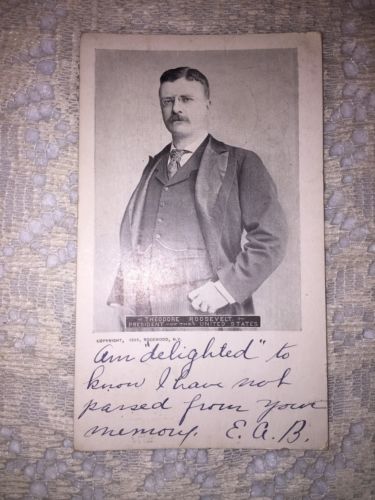 THEODORE ROOSEVELT
PRESIDENT OF THE UNITED STATES
COPYRIGHT, ROCKWOOD, N.Y.
Am "delighted" to
know I have not
passed from your
memory. E. A. B.